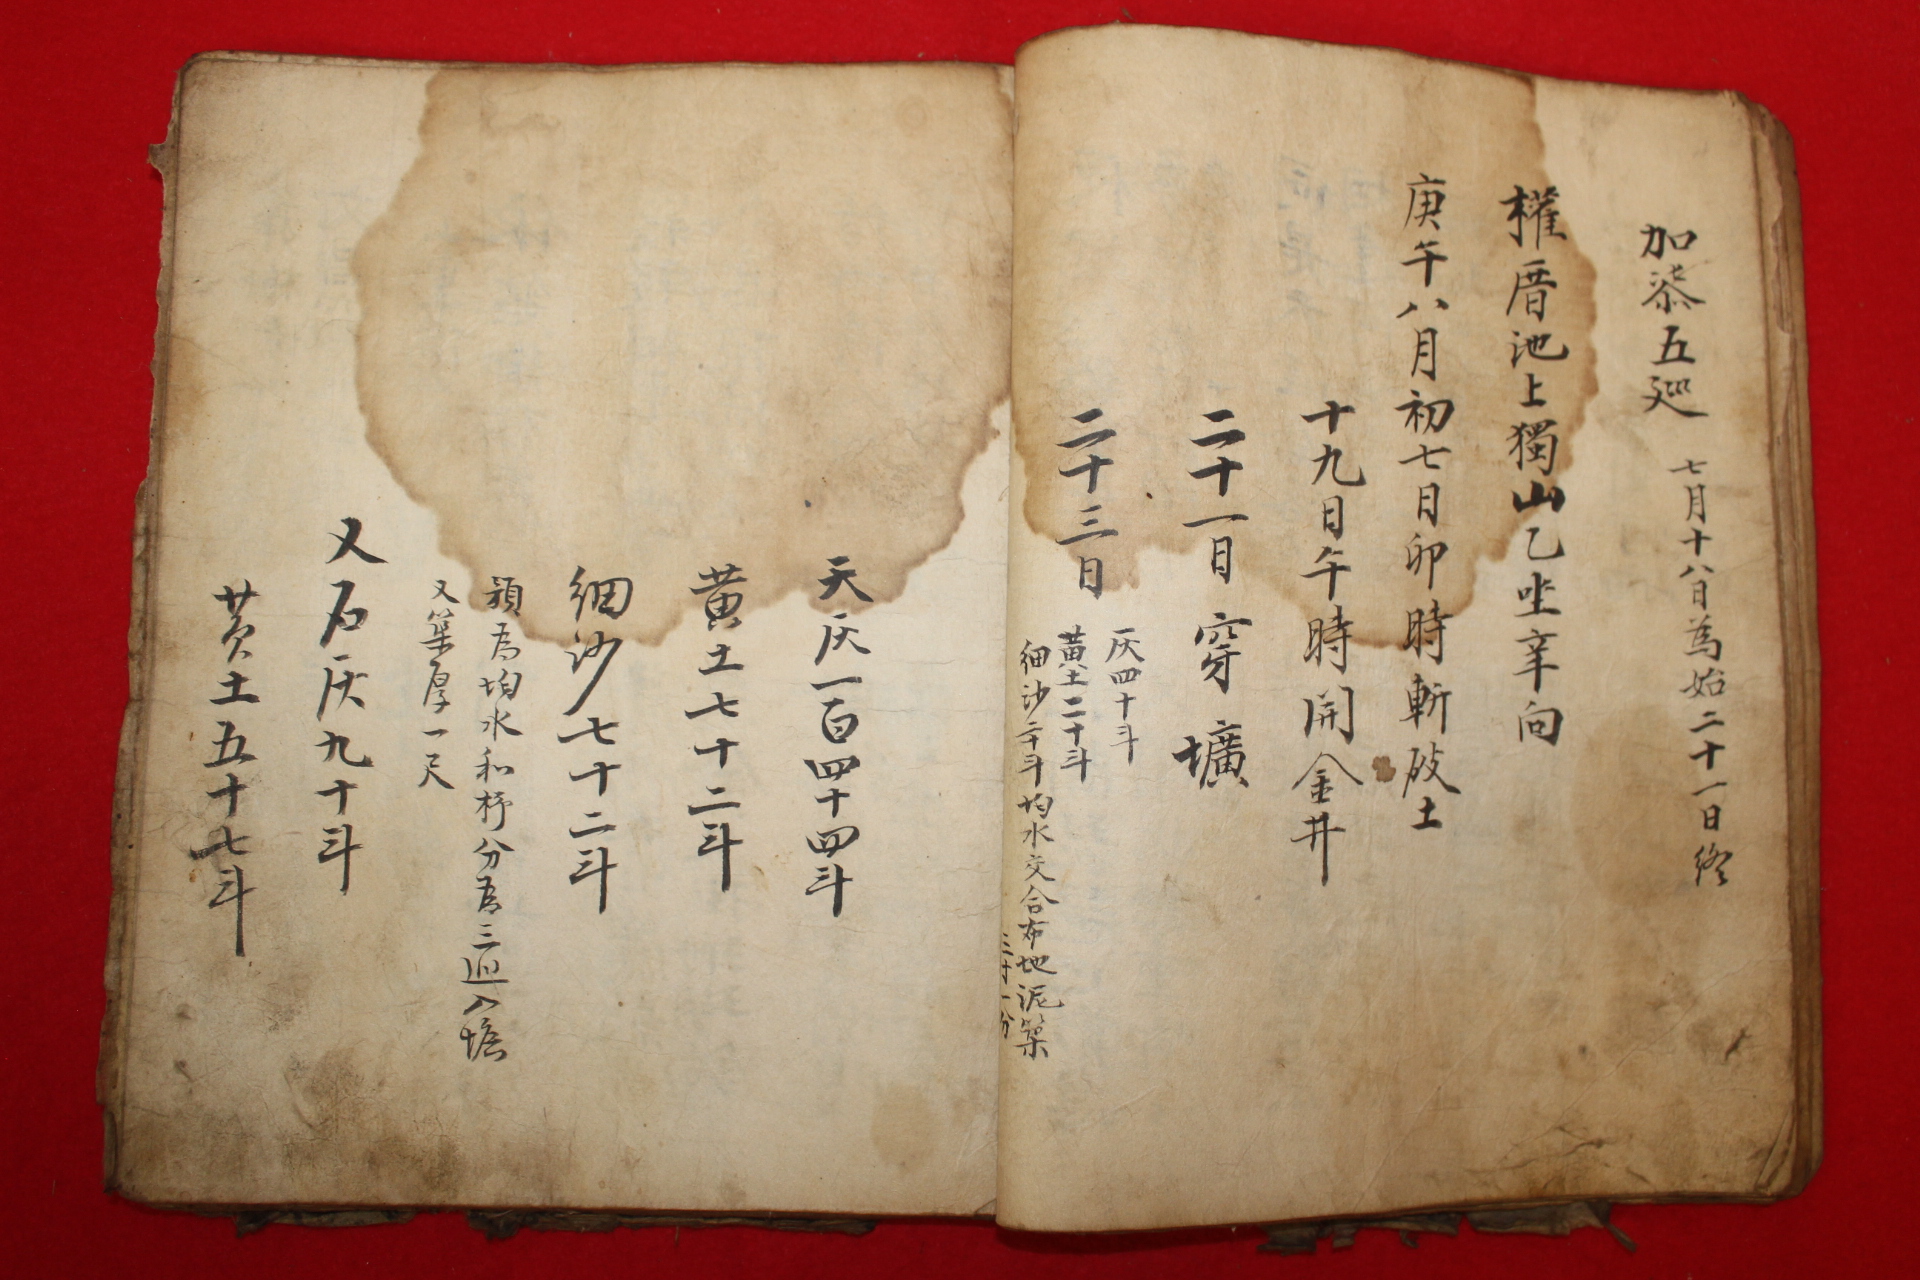 加漆五廵 七月十八日為始二十一日終
權厝池上獨山乙坐辛向
庚午八月初七日卯時斬破土
十九日午時開金井
二十一日穿壙
二十三日
灰四十斗
黃土二十斗
細沙二十斗 均水交合布地泥築
三寸一分
天灰一百四十四斗
黃土七十二斗
細沙七十二斗
為均水和杵分為三廵入
又築厚一尺
又石灰九十斗
黃土五十七斗